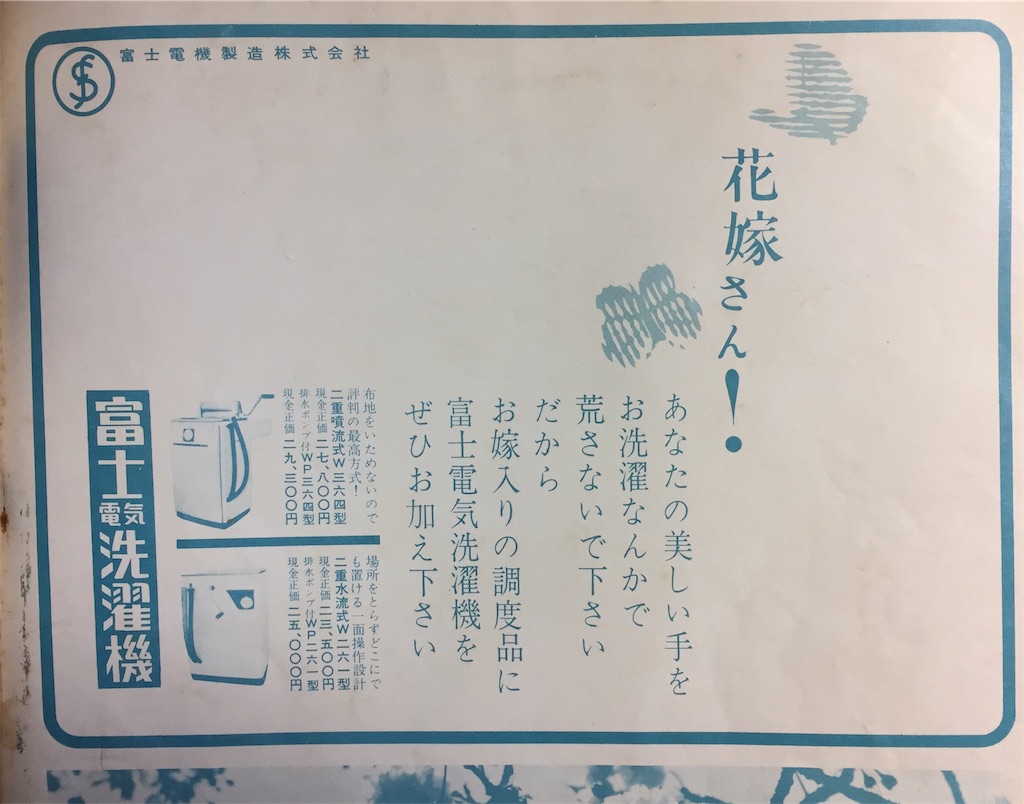 富士電機製造株式会社
花嫁さん!
あなたの美しい手を
お洗濯なんかで
荒さないで下さい
だから
お嫁入りの調度品に
富士電気洗濯機を
ぜひお加え下さい
布地をいためないので
評判の最高方式!
二重噴流式W三六四型
現金正価二七、八〇〇円
排水ポンプ付WP三六四型
現金正価二九、三〇〇円
場所をとらずどこにで
も置ける一面操作設計
二重水流式W二六一型
現金正価二三、五〇〇円
排水ポンプ付WP二六一型
現金正価二五、〇〇〇円
富士電気洗濯機